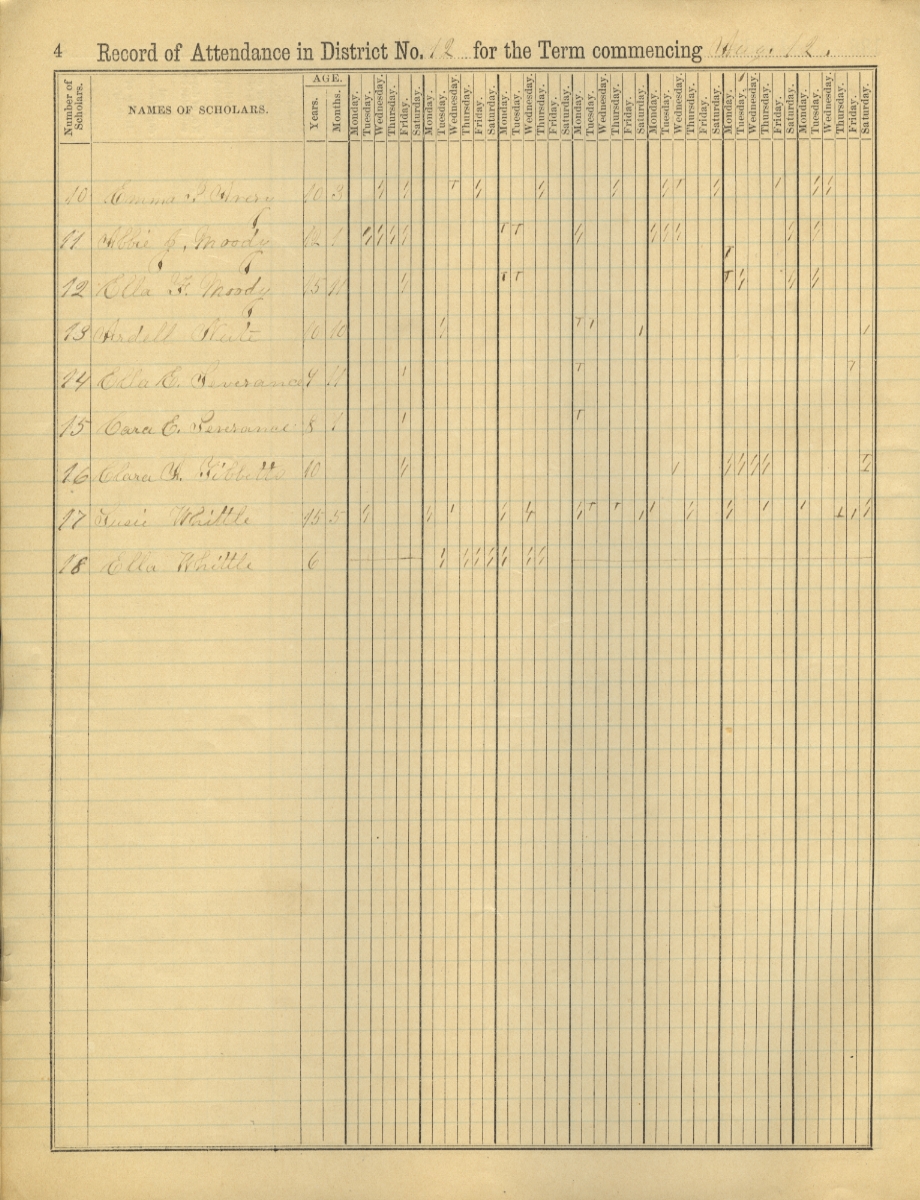 4 Record of Attendance in District No. 12 for the Term commencing Aug. 12.
Number of Scholars.
NAMES OF SCHOLARS.
AGE.
Years. Months. Monday. Tuesday. Wednesday. Thursday. Friday. Saturday. Monday. Tuesday. Wednesday Thursday. Friday. Saturday. Monday. Tuesday. Wednesday. Thursday. Friday. Saturday. Monday. Tuesday. Wednesday. Thursday. Friday. Saturday. Monday. Tuesday. Wednesday. Thursday. Friday. Saturday. Monday. Tuesday. Wednesday. Thursday. Friday. Saturday. Monday. Tuesday. Wednesday. Thursday. Friday. Saturday.
10 Emma P. Avery 10 3
11 Abbie J. Moody 12 1
12 Ella F. Moody 15 11
13 Ardell 10 10
14 Ella E. Severance 7 11
15 Cara E. Severance 8 1
16 Clara A. Tibbetts 10
17 Susie Whittle 15 5
18 Ella Whittle 6